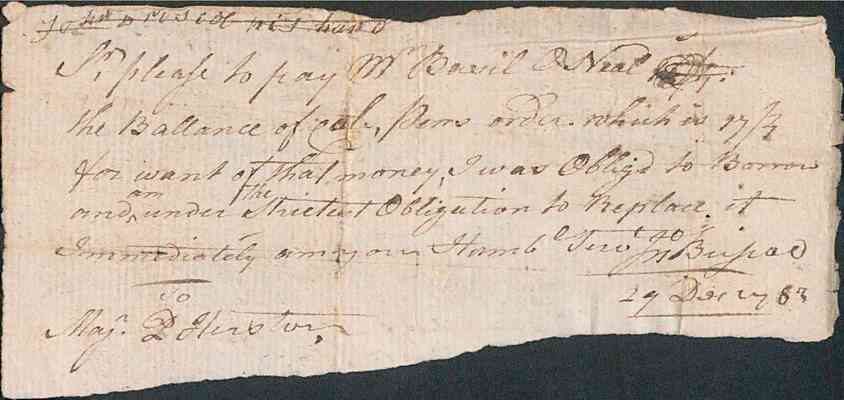 his hand
Sr. please to pay Mr Basil O Neal
the Ballance of Col. order which is 17/
for want of that money, I was Obligd to Borrow
and am under the Strictest Obligation to Replace it
Immediately am your Humbe Servt Jno
29 Decr 1783
To
Majr. P